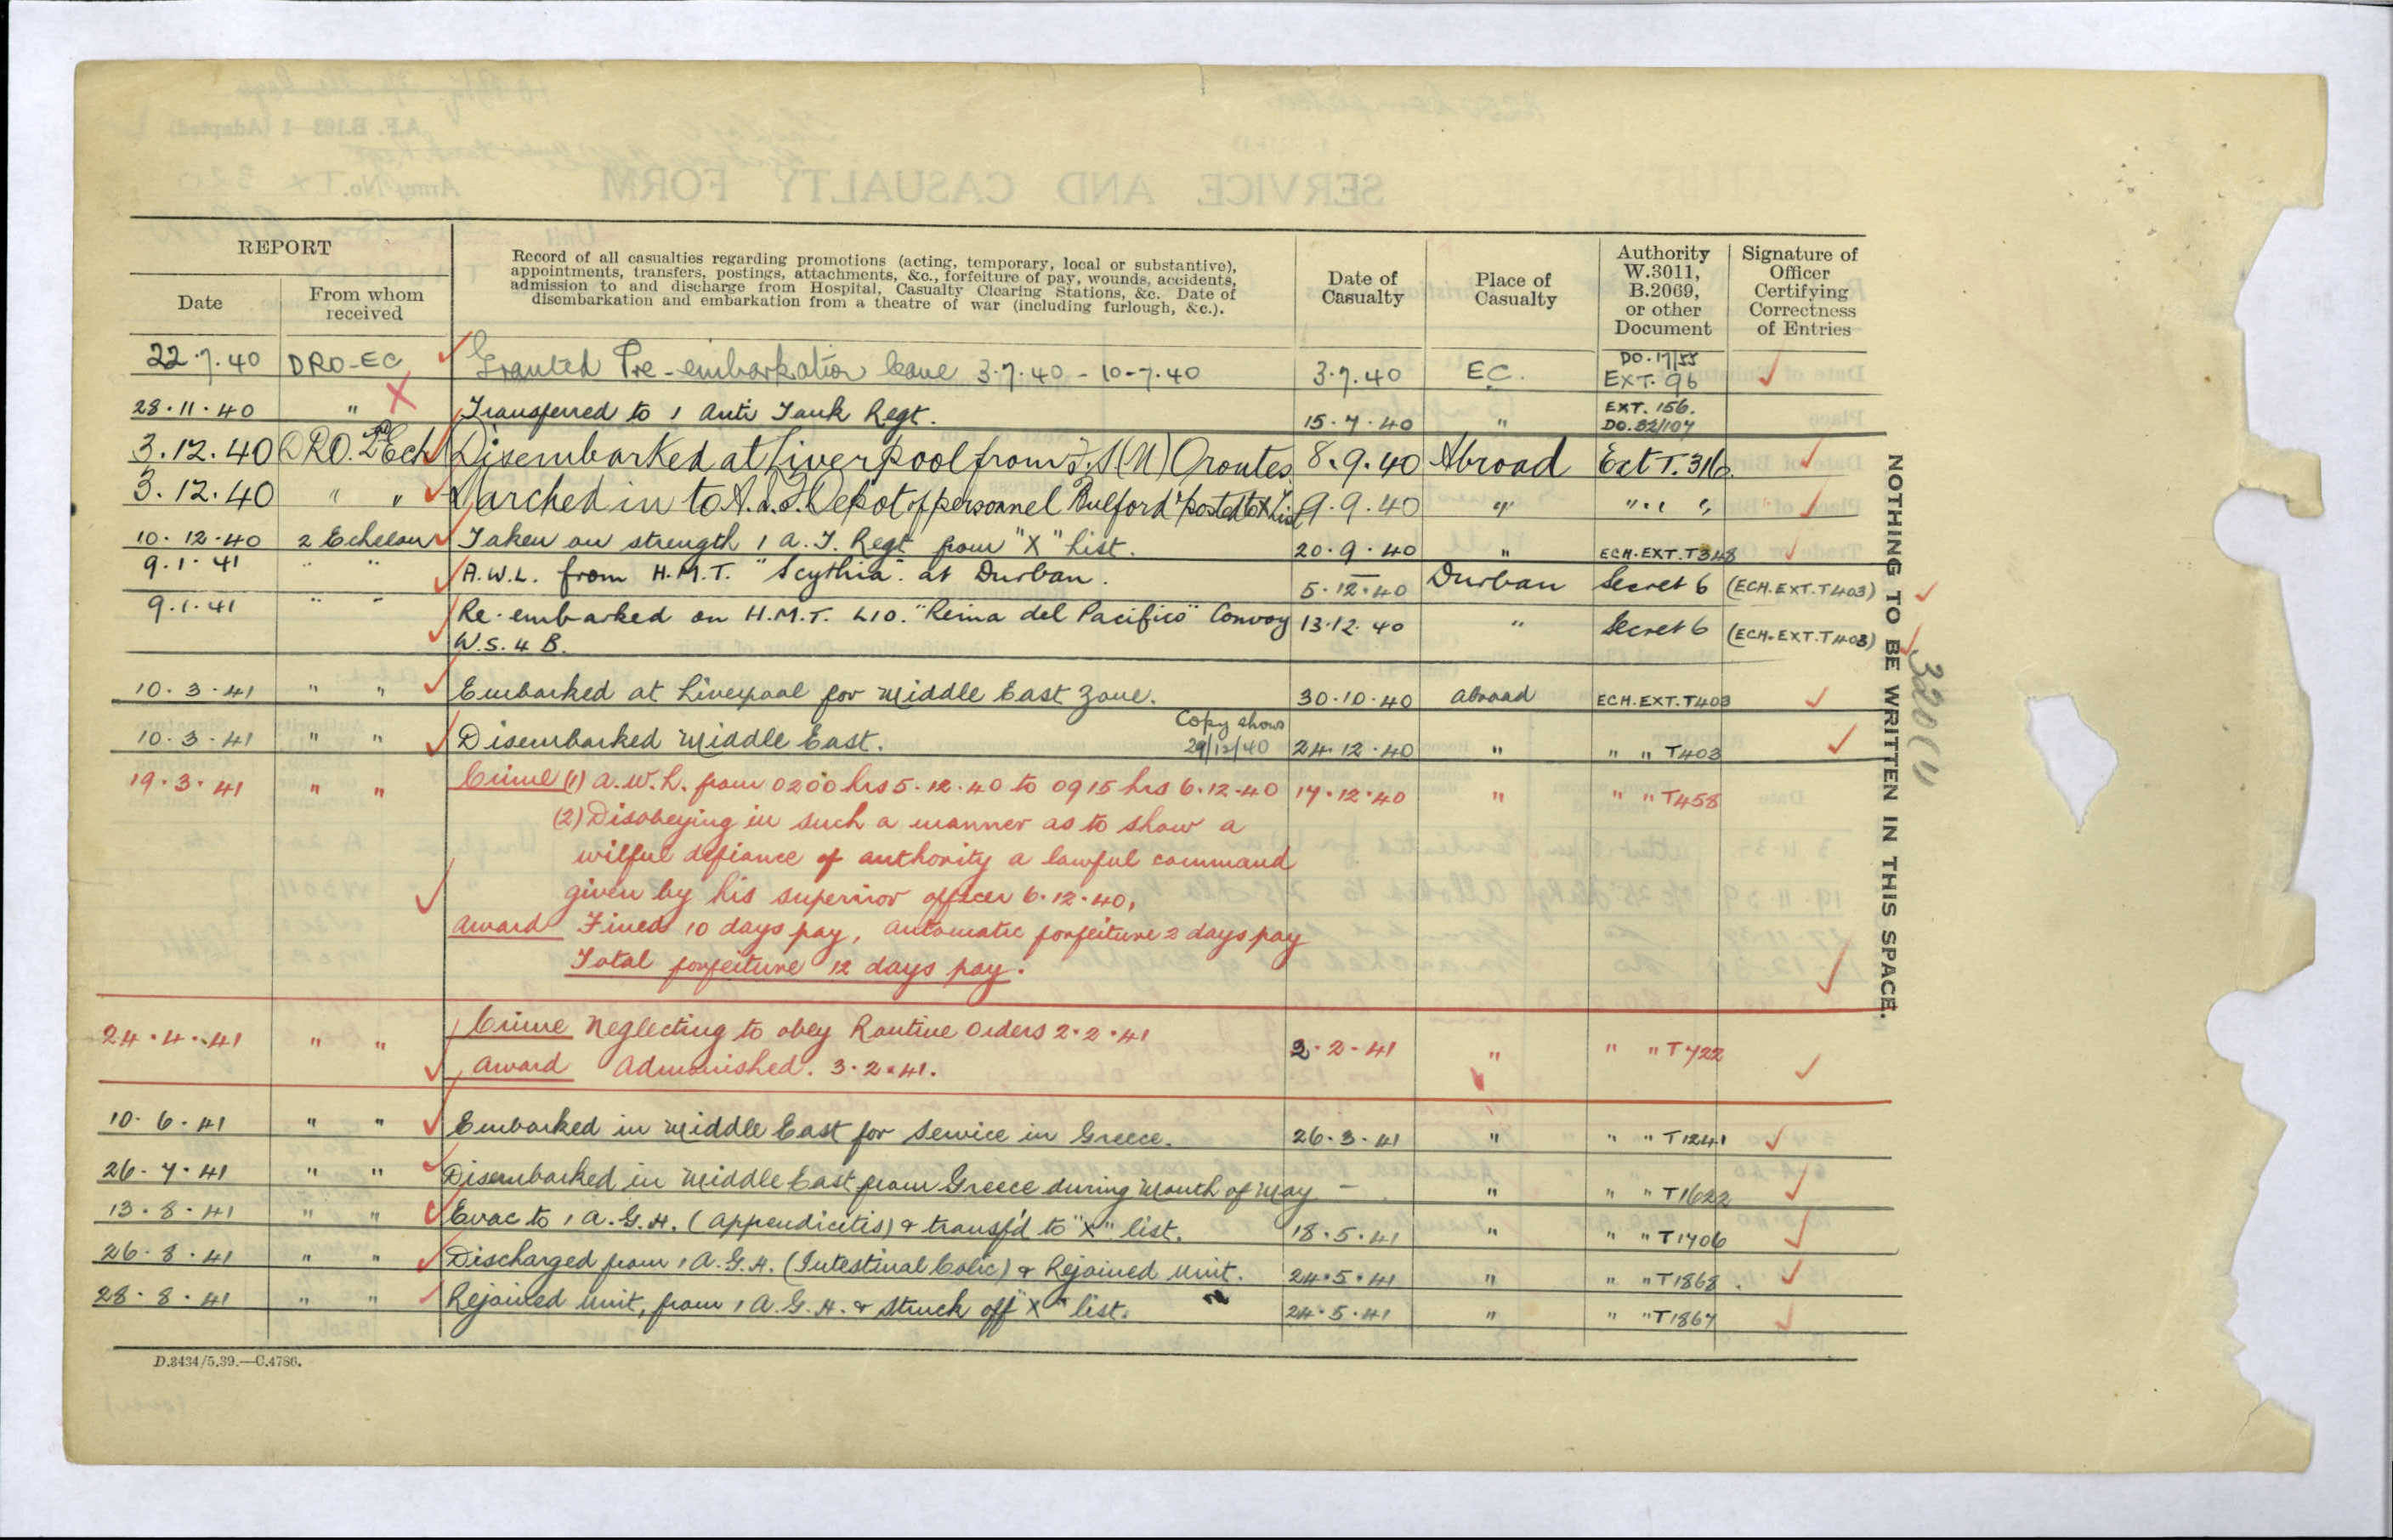 REPORT
Date
From whom
received
Record of all casualties regarding promotions (acting, temporary, local or substantive),
appointments, transfers, postings, attachments, &c., forfeiture of pay, wounds, accidents,
admission to and discharge from Hospital, Casualty Clearing Stations, &c. Date of
disembarkation and embarkation from a theatre of war (including furlough, &c.).
Date of
Casualty
Place of
Casualty
Authority
W.3011,
B.2069,
or other
Document
Signature of
Officer
Certifying
Correctness
of Entries
22.7.40 DRO-EC Granted Pre-embarkation leave 3.7.40 - 10-7.40 3.7.40 EC. DO.17/55
EXT. 96
28.11.40 " Transferred to 1 Anti Tank Regt. 15.7.40 " EXT. 156.
DO.32/107
3.12.40 DRO. 2 Ech Disembarked at Liverpool from Orontes 8.9.40 Abroad Ext T.316
3.12.40 " " Marched in to A.I.F. Depot of personnel Bulford & posted to X List 9.9.40 " " " "
10.12.40 2 Echelon Taken on strength 1 A.T. Regt from "X" list. 20.9.40 " ECH.EXT.T348
9.1.41 " " A.W.L. from H.M.T. "Scythia". at Durban. 5.12.40 Durban Secret 6 (ECH.EXT.T403)
9.1.41 " " Re-embarked on H.M.T. L10. "Reina del Pacifico" Convoy 13.12.40 " Secret 6 (ECH.EXT.T403)
W.S. 4 B.
10.3.41 " " Embarked at Liverpool for Middle East Zone. 30.10.40 abroad ECH.EXT.T403
Copy shows
10.3.41 " " Disembarked Middle East. 29/12/40 24.12.40 " " " T403
19.3.41 " " Crime (1) A.W.L. from 0200 hrs 5.12.40 to 0915 hrs 6.12.40 17.12.40 " " " T458
(2) Disobeying in such a manner as to show a
wilful defiance of authority a lawful command
given by his superior officer 6.12.40,
Award Fined 10 days pay, automatic forfeiture 2 days pay
Total forfeiture 12 days pay.
24.4.41 " " Crime Neglecting to obey Routine Orders 2.2.41 2.2.41 " " " T722
Award Admonished. 3.2.41.
10.6.41 " " Embarked in Middle East for Service in Greece. 26.3.41 " " " T1241
26.7.41 " " Disembarked in Middle East from Greece during Month of May - " " " T1622
13.8.41 " " Evac to 1 A.G.H. (Appendicitis) & transf'd to "X" list. 18.5.41 " " " T1706
26.8.41 " " Discharged from 1 A.G.H. (Intestinal Colic) & Rejoined Unit. 24.5.41 " " " T1868.
28.8.41 " " Rejoined Unit, from 1 A.G.H. & struck off "X" list. 24.5.41 " " " T1867
D.3434/5.39.—C.4786.
NOTHING TO BE WRITTEN IN THIS SPACE.
320(1)